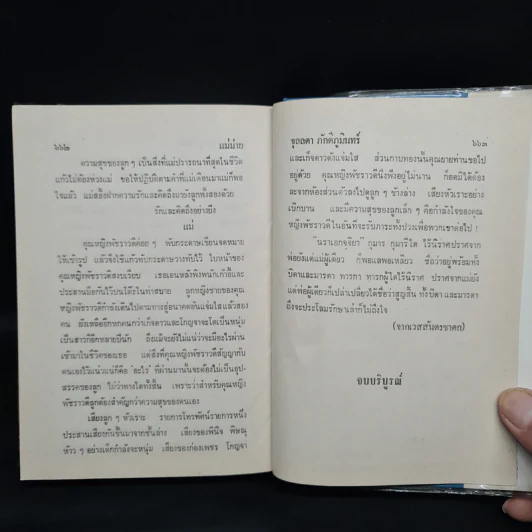 ๖๖๒ แม่ม่าย
ความสุขของลูก ๆ เป็นสิ่งที่แม่ปรารถนาที่สุดในชีวิต
แก้วไม่ต้องห่วงแม่ ขอให้ปฏิบัติตามคำที่แม่เตือนมาแม่ก็พอ
ใจแล้ว แม่สั่งฝากความรักและคิดถึงมายังลูกทั้งสองด้วย
รักและคิดถึงอย่างยิ่ง
แม่
คุณหญิงพัชราวดีค่อย ๆ พับกระดาษเขียนจดหมาย
ให้เข้ารูป แล้วจึงใช้แก้วทับกระดาษวางทับไว้ ใบหน้าของ
คุณหญิงพัชราวดีสงบเงียบ เธอเอนหลังพิงพนักเก้าอี้และ
ประสานมือกันไว้บนโต๊ะในท่าสบาย ลูกหญิงชายของคุณ
หญิงพัชราวดีกำลังเดินไปตามทางสู่อนาคตอันแจ่มใสแล้วสอง
คน ยังเหลืออีกหกคนกว่าเก็จดาวและโกญจาจะโตเป็นหนุ่ม
เป็นสาวก็อีกหลายปีนัก ถึงแม้จะยังไม่แน่ว่าจะมีอะไรผ่าน
เข้ามาในชีวิตของเธอ แต่สิ่งที่คุณหญิงพัชราวดีสัญญากับ
ตนเองไว้แน่นแน่ก็คือ อะไร ที่ผ่านมานั้นจะต้องไม่เป็นอุป-
สรรคของลูก ไม่ว่าทางใดทั้งสิ้น เพราะว่าสำหรับคุณหญิง
พัชราวดีลูกต้องสำคัญกว่าความสุขของตนเอง
เสียงลูก ๆ หัวเราะ รายการโทรทัศน์รายการหนึ่ง
ประสานเสียงกันขึ้นมาจากชั้นล่าง เสียงของพินิจ พิษณุ
ห้าว ๆ อย่างเด็กกำลังจะหนุ่ม เสียงของก่องเพชร โกญจา
ชลลดา ภักดีภูมินทร์ ๖๖๓
และเก็จดาวดังแจ่มใส ส่วนกาบทองนั้นคุณยายท่านขอไป
อยู่ด้วย คุณหญิงพัชราวดีนั่งฟังอยู่ไม่นาน ก็อดมิได้ต้อง
ละจากห้องส่วนตัวลงไปดูลูก ๆ ข้างล่าง เสียงหัวเราะอย่าง
เบิกบาน และมีความสุขของลูกเล็ก ๆ คือกำลังใจของคุณ
หญิงพัชราวดีในอันที่จะรับภาระทั้งปวงเพื่อพวกเขาต่อไป !
พ่อยังแต่แม่ผู้เดียว ก็พอแลพอเหลียว ชื่อว่าอยู่พร้อมทั้ง
บิดาและมารดา ทารกา ทารกผู้ใดไร้นิราศ ปราศจากแม่ยัง
แต่พ่อผู้เดียวก็เปล่าเปลี่ยวได้ชื่อว่าสูญสิ้น ทั้งบิดาและมารดา
ถึงจะประโลมรักษาเล่าก็ไม่ถึงใจ
(จากเวสสันดรชาดก)
จบบริบูรณ์